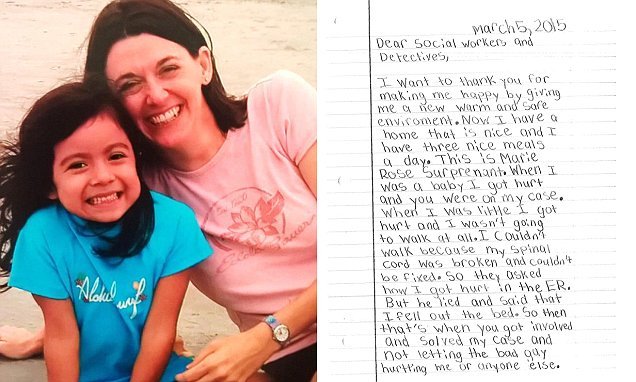 Aloha
March 5, 2015
Dear Social workers and
Detectives,
I want to thank you for
making me happy by giving
me a new warm and safe
enviroment. Now I have a
home that is nice and I
have three nice meals
a day. This is Marie
Rose Surprenant. When I
was a baby I got hurt
and you were on my case.
When I was little I got
hurt and I wasn't going
to walk at all. I couldn't
walk because my spinal
cord was broken and couldn't
be fixed. So they asked
how I got hurt in the ER.
But he lied and said that
I fell out the bed. So then
that's when you got involved
and solved my case and
not letting the bad guy
hurtting me or anyone else.